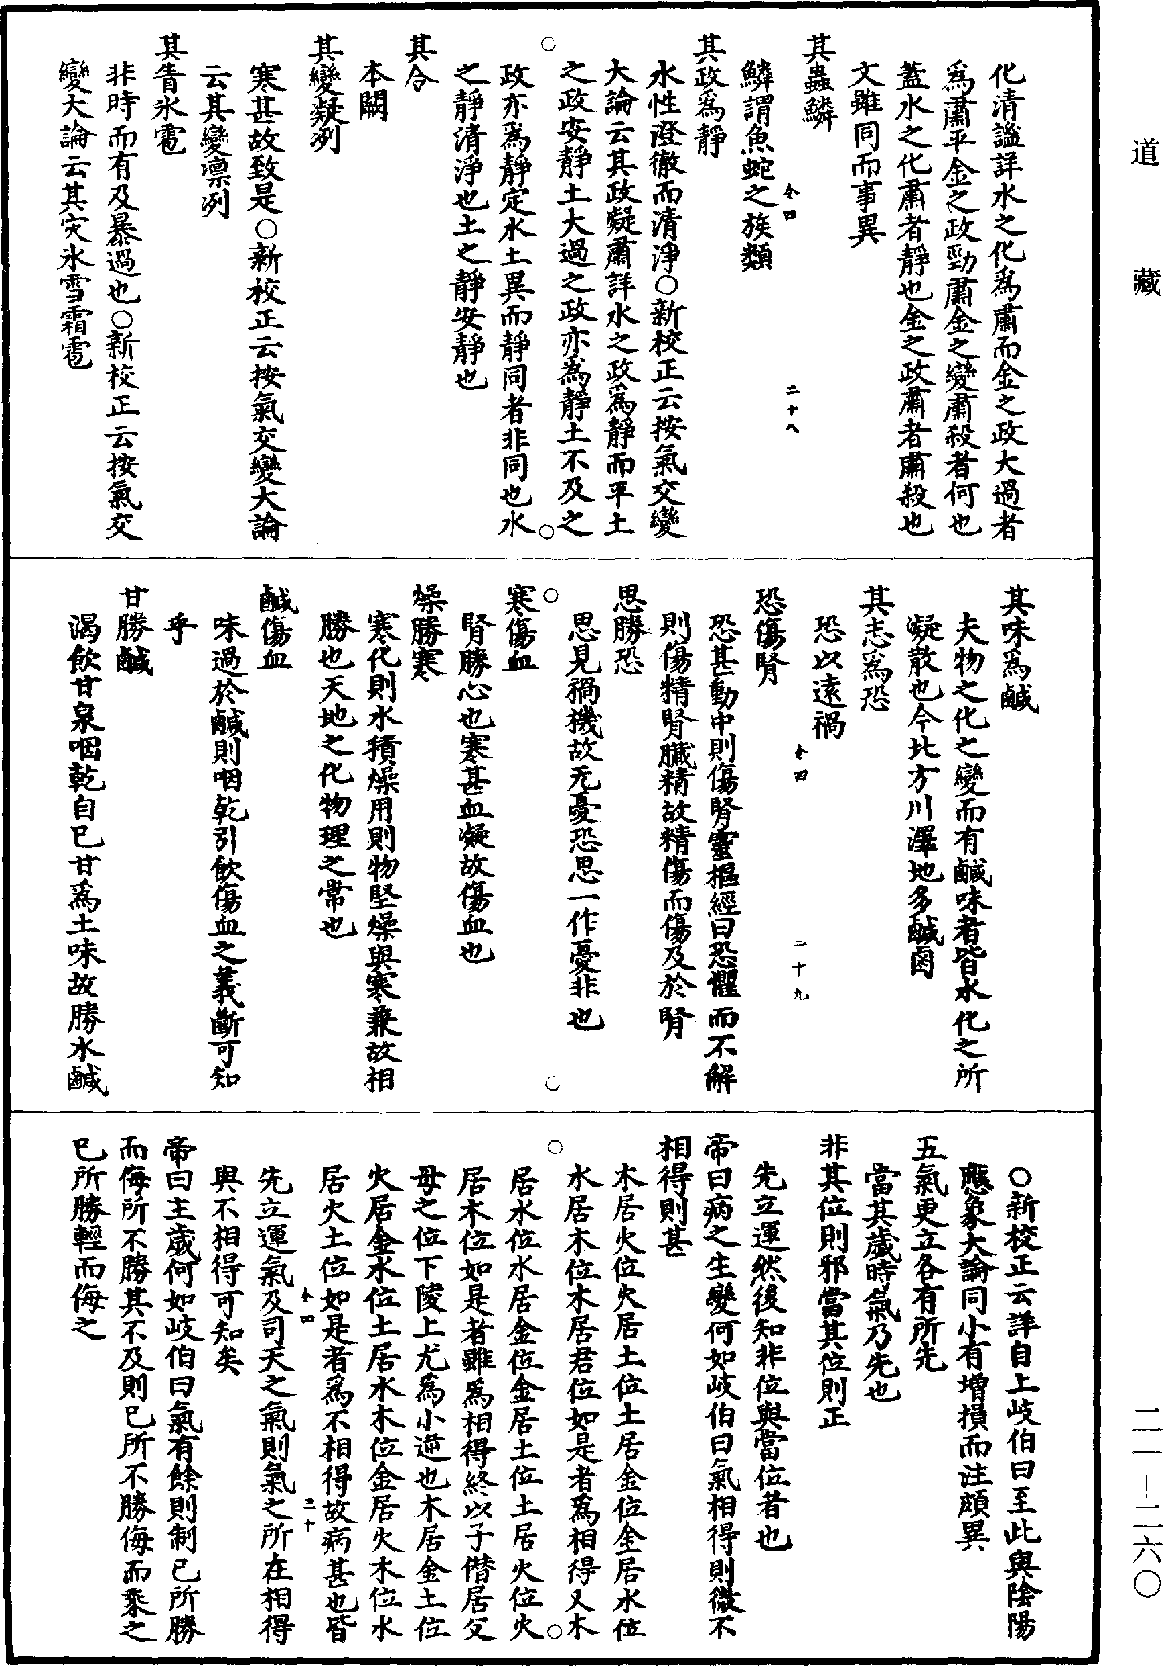 道藏
化清謐詳水之化為肅而金之政大過者
為肅平金之政勁肅金之變肅殺者何也
蓋水之化肅者靜也金之政肅者肅殺也
文雖同而事異
其蟲鱗
全四　二十八
鱗謂魚蛇之族類
其政為靜
水性澄徹而清淨○新校正云按氣交變
大論云其政凝肅詳水之政為靜而平土
之政安靜土大過之政亦為靜土不及之
政亦為靜定水土異而靜同者非同也水
之靜清淨也土之靜安靜也
其令
本闕
其變凝冽
寒甚故致是○新校正云按氣交變大論
云其變凛冽
其眚氷雹
非時而有及暴過也○新校正云按氣交
變大論云其灾氷雪霜雹
其味為鹹
夫物之化之變而有鹹味者皆水化之所
凝散也今北方川澤地多鹹鹵
其志為恐
恐以遠禍
全四　二十九
恐傷腎
恐甚動中則傷腎靈樞經曰恐懼而不解
則傷精腎臟精故精傷而傷及於腎
思勝恐
思見禍機故无憂恐思一作憂非也
寒傷血
腎勝心也寒甚血凝故傷血也
燥勝寒
寒化則水積燥用則物堅燥與寒兼故相
勝也天地之化物理之常也
鹹傷血
味過於鹹則咽乾引飲傷血之義斷可知
乎
甘勝鹹
渴飲甘泉咽乾自已甘為土味故勝水鹹
○新校正云詳自上岐伯曰至此與陰陽
應象大論同小有增損而注頗異
五氣更立各有所先
當其歲時氣乃先也
非其位則邪當其位則正
先立運然後知非位與當位者也
帝曰病之生變何如岐伯曰氣相得則微不
相得則甚
木居火位火居土位土居金位金居水位
水居木位木居君位如是者為相得又木
居水位水居金位金居土位土居火位火
居木位如是者雖為相得終以子僭居父
母之位下陵上尤為小逆也木居金土位
火居金水位土居水木位金居火木位水
居火土位如是者為不相得故病甚也皆
全四　三十
先立運氣及司天之氣則氣之所在相得
與不相得可知矣
帝曰主歲何如岐伯曰氣有餘則制已所勝
而侮所不勝其不及則已所不勝侮而乘之
已所勝輕而侮之
二一—二六〇